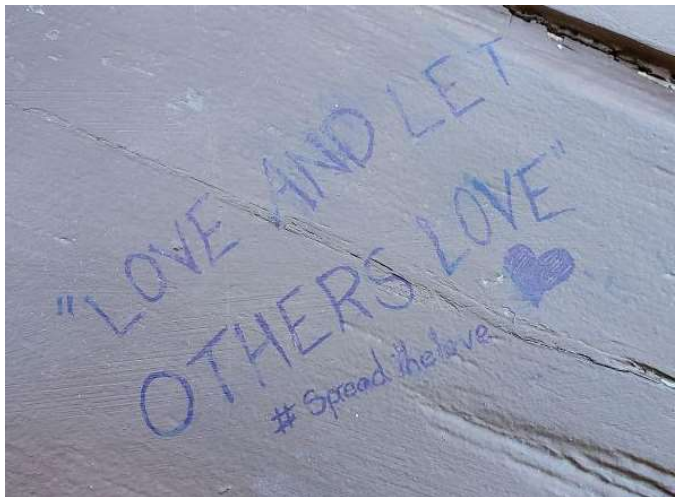 "LOVE AND LET
OTHERS LOVE"
#Spreadthelove